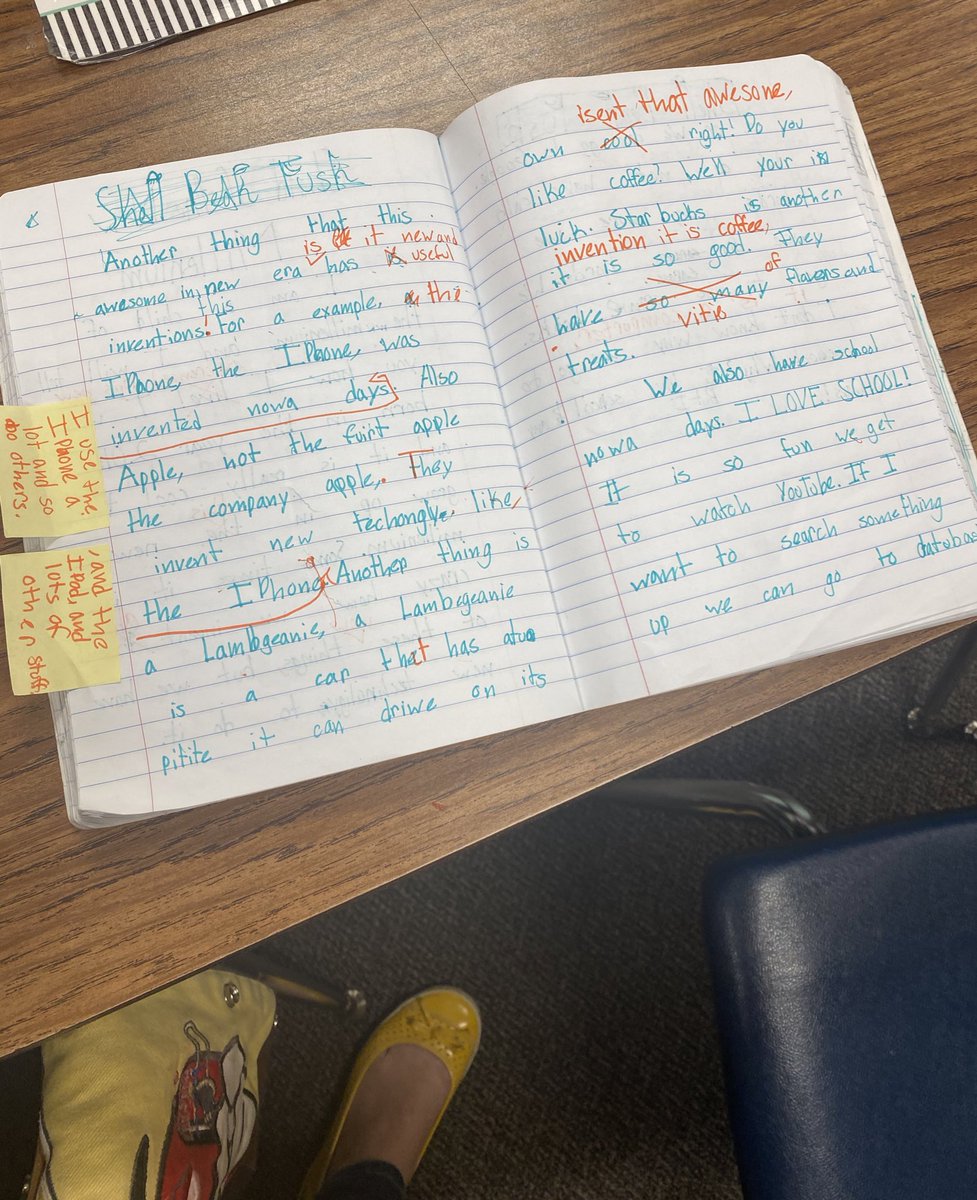 Another thing that this
is it new and
awesome in new era has useful
this
inventions! For a example, the
I Phone, the I Phone, was
invented nowa days. Also
Apple, not the fuirt apple
the company apple,. They
invent new techongly, like,
the I Phone, Another thing is
a Lambgeanie, a Lambegeanie
is a car that has atuo
pitite it can driwe on its
I use the
I Phone a
lot and so
do others.
, and the
I Pad, and
lots of
other stuff
isent that awesome,
own cool right! Do you
like coffee! Well your in
luck. Starbucks is another
invention it is coffee,
it is so good. They
have so many of flavers and
vitis
treats.
We also have school
nowa days. I LOVE SCHOOL!
It is so fun we get
to watch YooTube. If I
want to search something
up we can go to databas